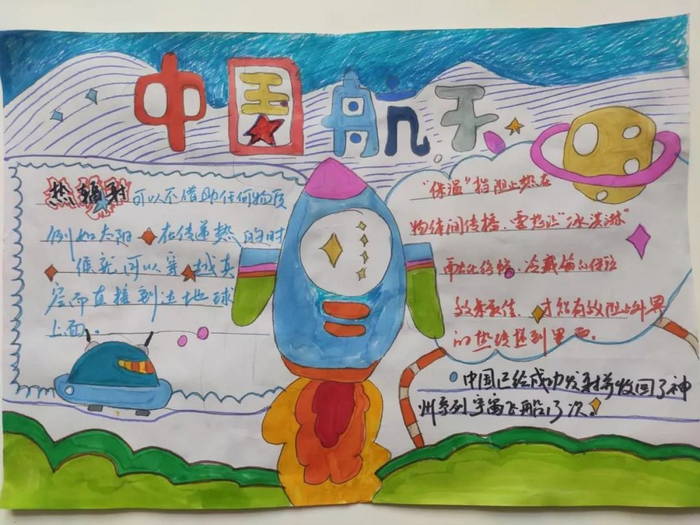 中国航天
热辐射可以不借助任何物质
例如太阳 在传递热的时
候就可以穿越真
空而直接到达地球
上面。
"保温"指阻止热在
物体间传播,要想让"冰淇淋"
冷藏箱的保验
效果最佳,才能有效阻止外界
的热传递到里面。
中国已给成功发射并收回了神
州系列宇宙飞船13次。